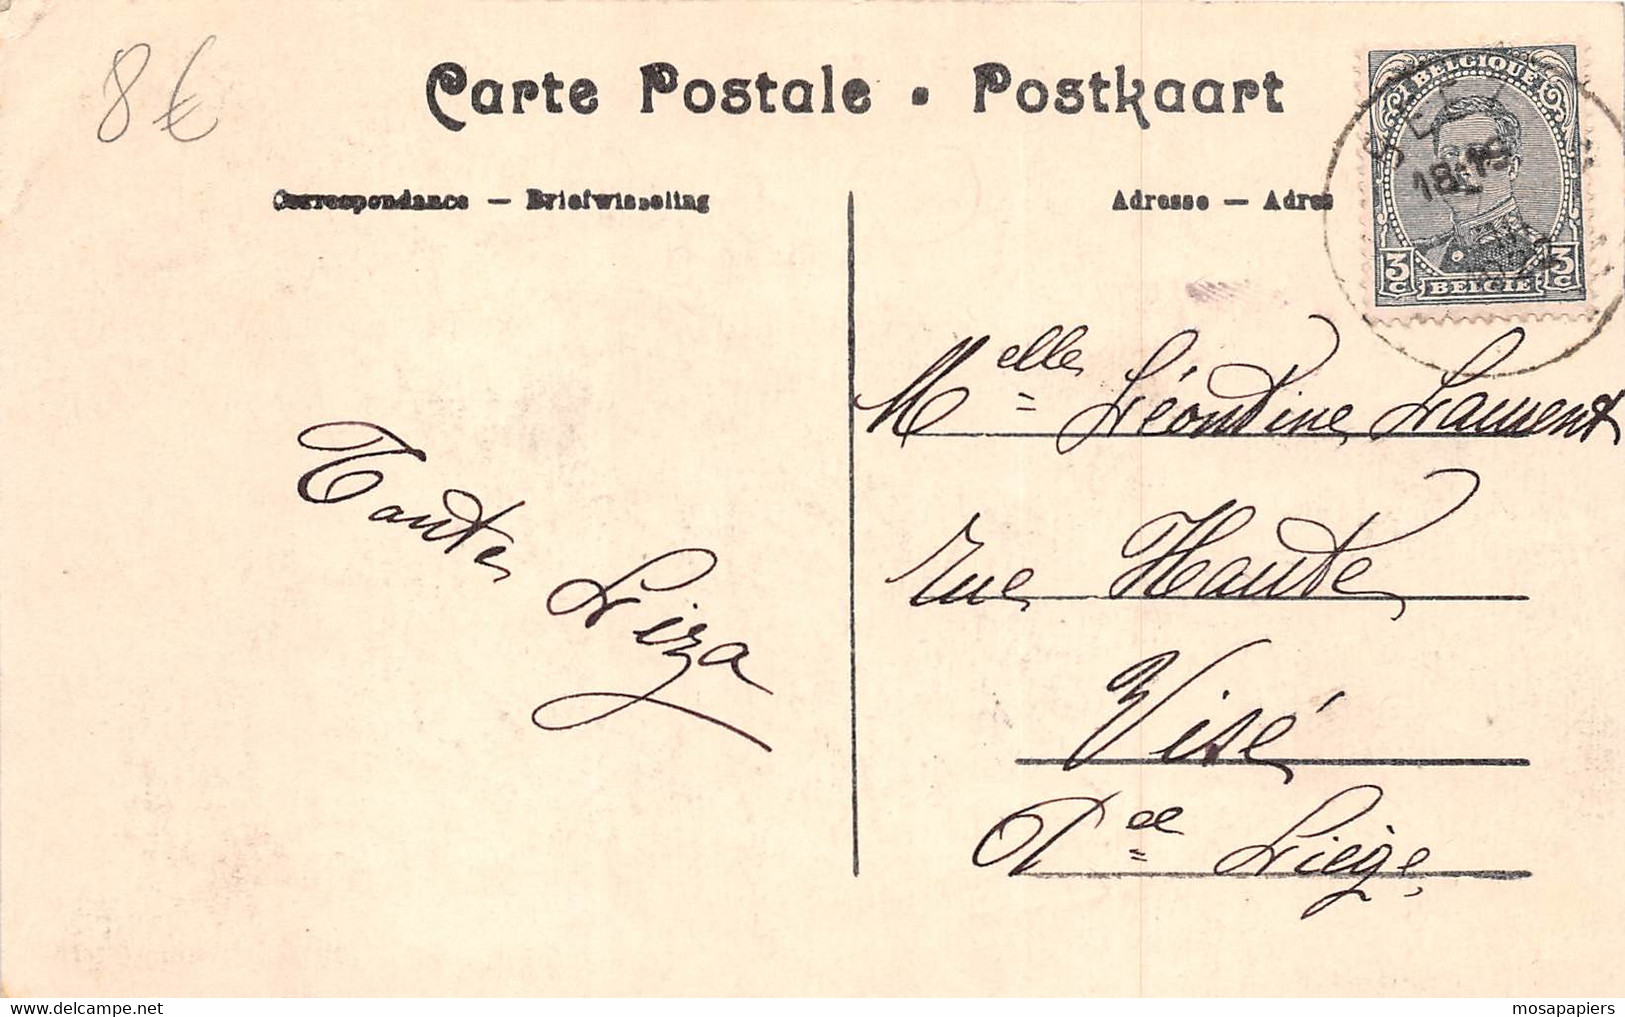 8€
Carte Postale • Postkaart
Correspondance — Briefwisseling
Adresse — Adres
BELGIQUE
18-19
3 C
BELGIE
3 C
Melle Léontine Laurent
rue Haute
Visé
Pce Liège
Tante Liza
mosapapiers